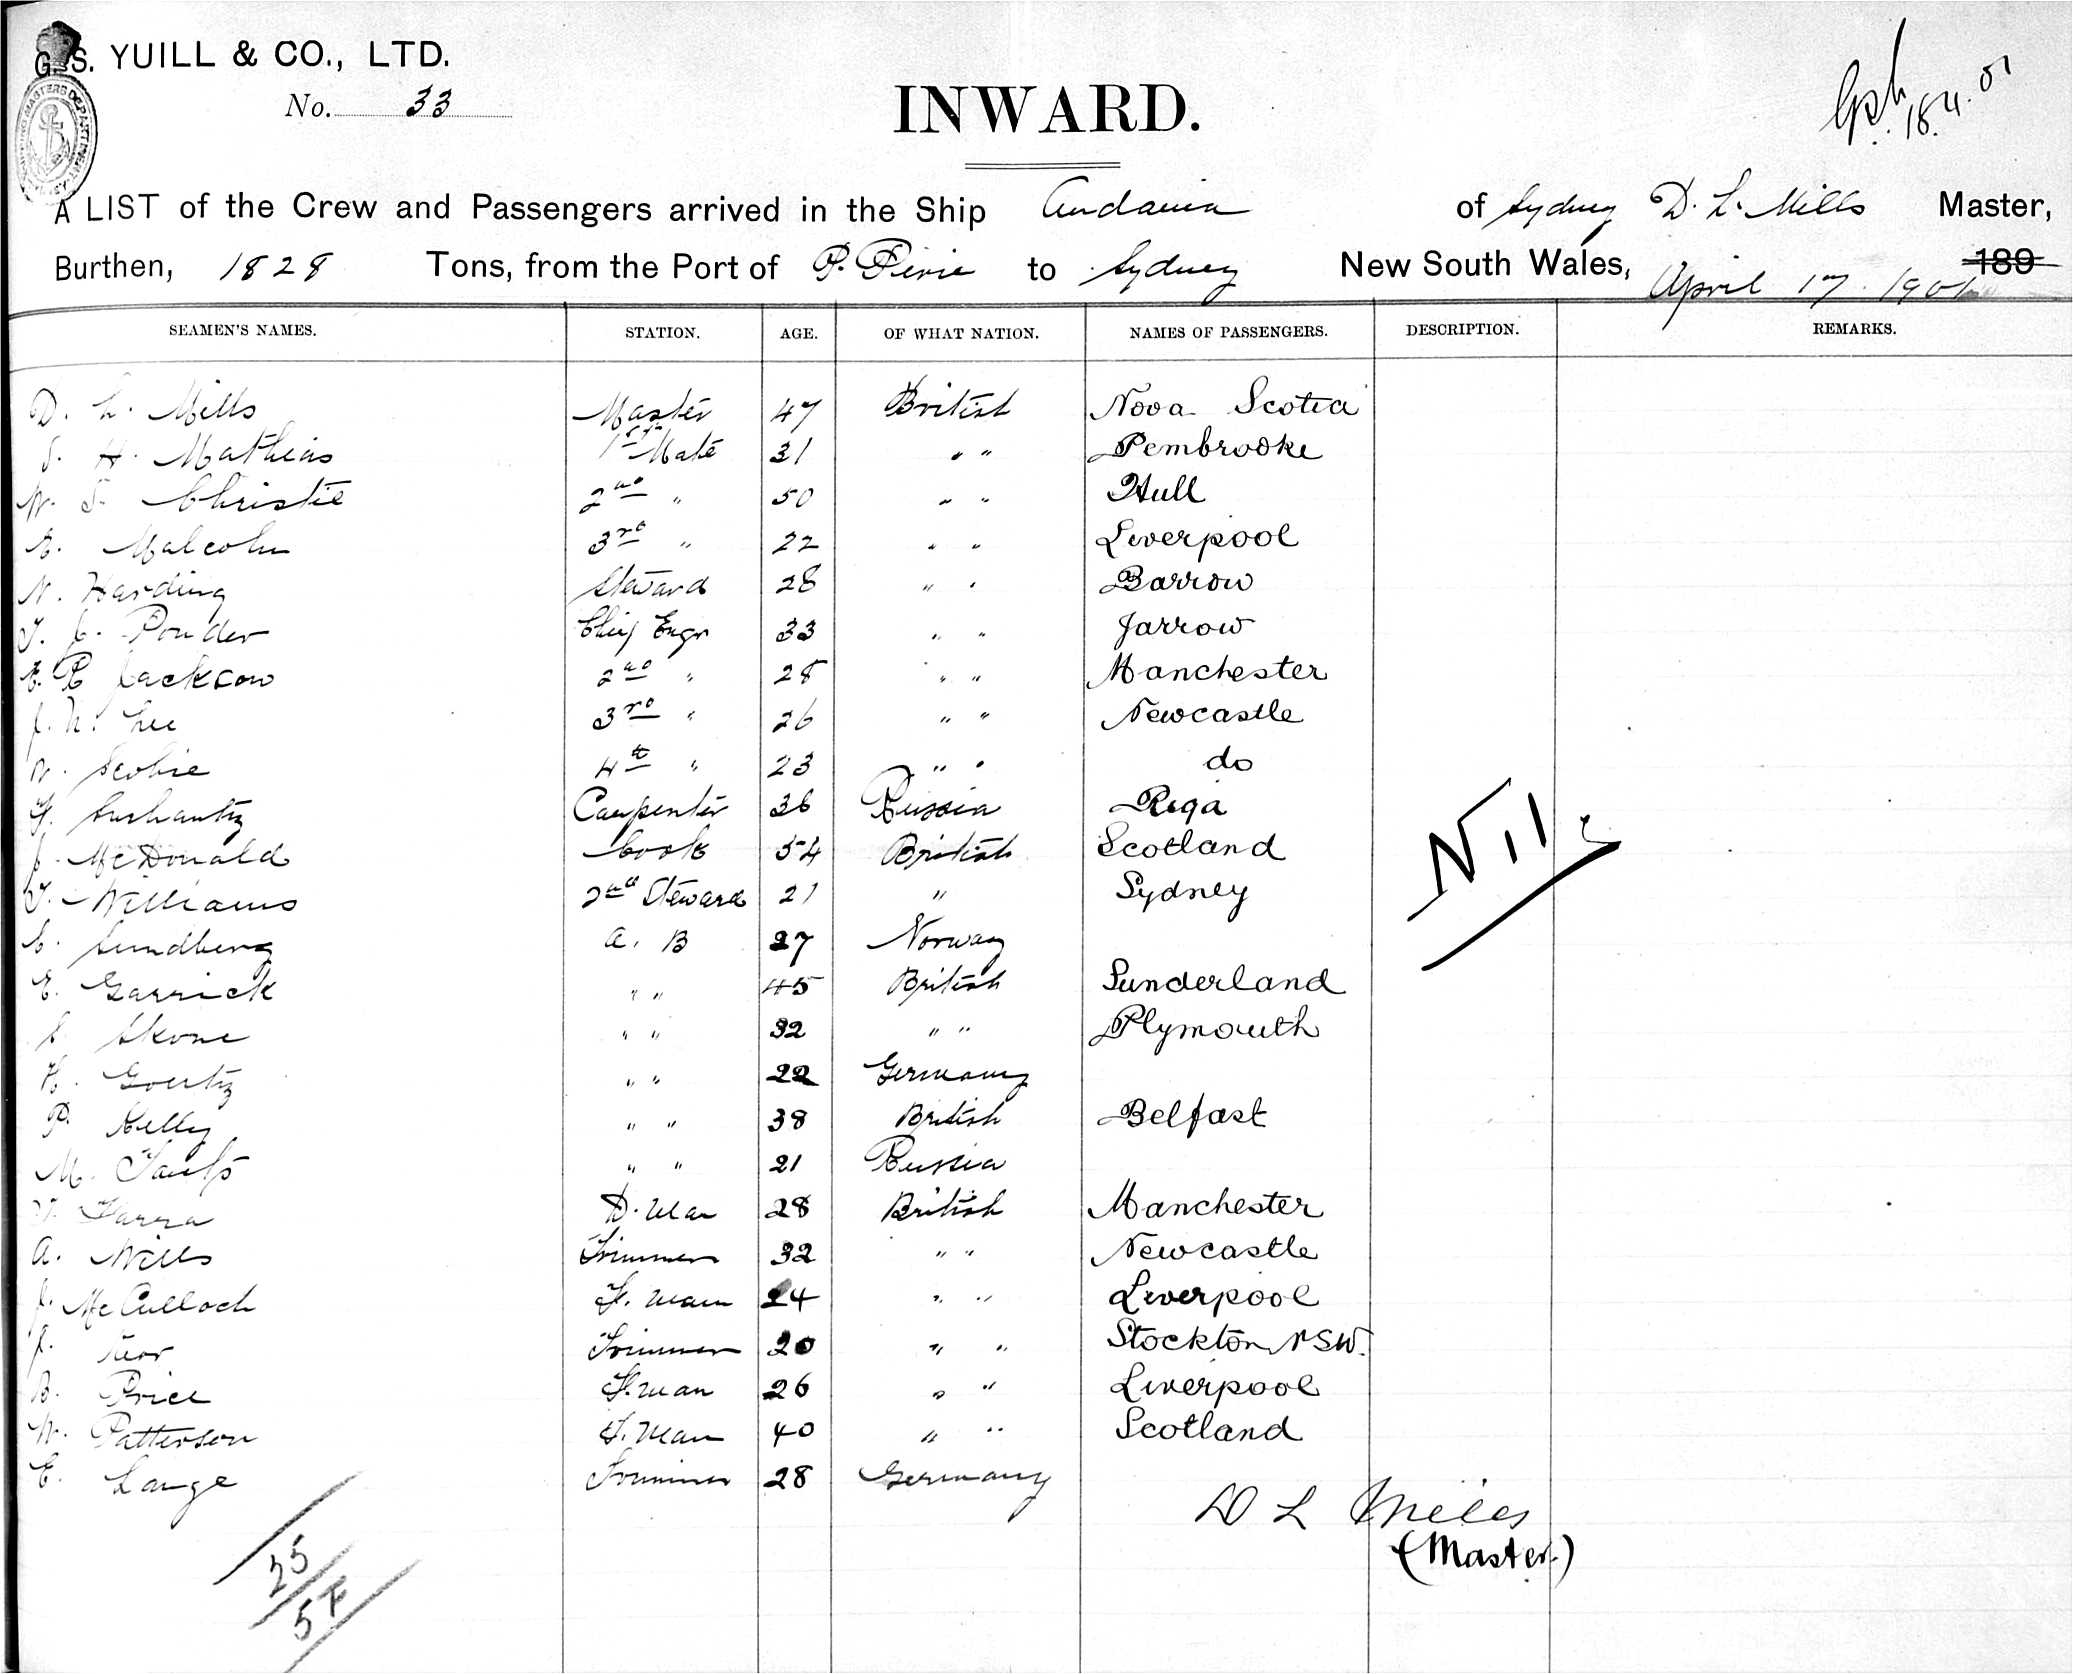 G. S. YUILL & CO., LTD.
No. 33
INWARD.
18.4.01
A LIST of the Crew and Passengers arrived in the Ship of Sydney D. L. Mills Master,
Burthen, 1828 Tons, from the Port of P. Pirie to Sydney New South Wales, April 17. 1901 189
SEAMEN'S NAMES. STATION. AGE. OF WHAT NATION. NAMES OF PASSENGERS. DESCRIPTION. REMARKS.
D. L. Mills Master 47 British Nova Scotia
S. H. Mathias 1st Mate 31 " " Pembrooke
W. S. Christie 2nd " 50 " " Hull
A. Malcolm 3rd " 22 " " Liverpool
N. Harding Steward 28 " " Barrow
T. J. Pounder Chief Engr 33 " " Jarrow
E. R Jackson 2nd " 28 " " Manchester
J. N. Lee 3rd " 26 " " Newcastle
W. Scobie 4th " 23 " " do
Carpenter 36 Russia Riga
J. McDonald Cook 54 British Scotland
T. Williams 2nd Steward 21 " Sydney
C. Sundberg A. B 27 Norway
E. Garrick " " 45 British Sunderland
S. Skone " " 32 " " Plymouth
H. Goertz " " 22 Germany
P. Kelly " " 38 British Belfast
M. " " 21 Russia
Farra D. Man 28 British Manchester
A. Wills Trimmer 32 " " Newcastle
J. McCulloch F. Man 24 " " Liverpool
J. Kerr Trimmer 20 " " Stockton NSW.
B. Price F. Man 26 " " Liverpool
W. Patterson F. Man 40 " " Scotland
E. Lange Trimmer 28 Germany
Nil
D L Mills
(Master.)
25
5 F